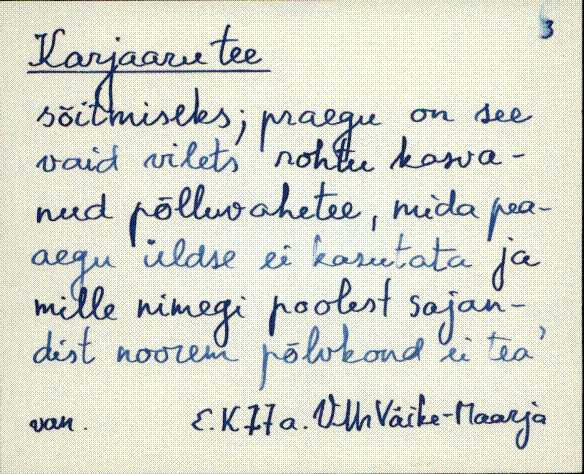 3
Karjaaru tee
sõitmiseks; praegu on see
vaid vilets rohtu kasva-
nud põlluvahetee, mida pea-
aegu üldse ei kasutata ja
mille nimegi poolest sajan-
dist noorem põlvkond ei tea'
van. E. K 77 a. Väike-Maarja